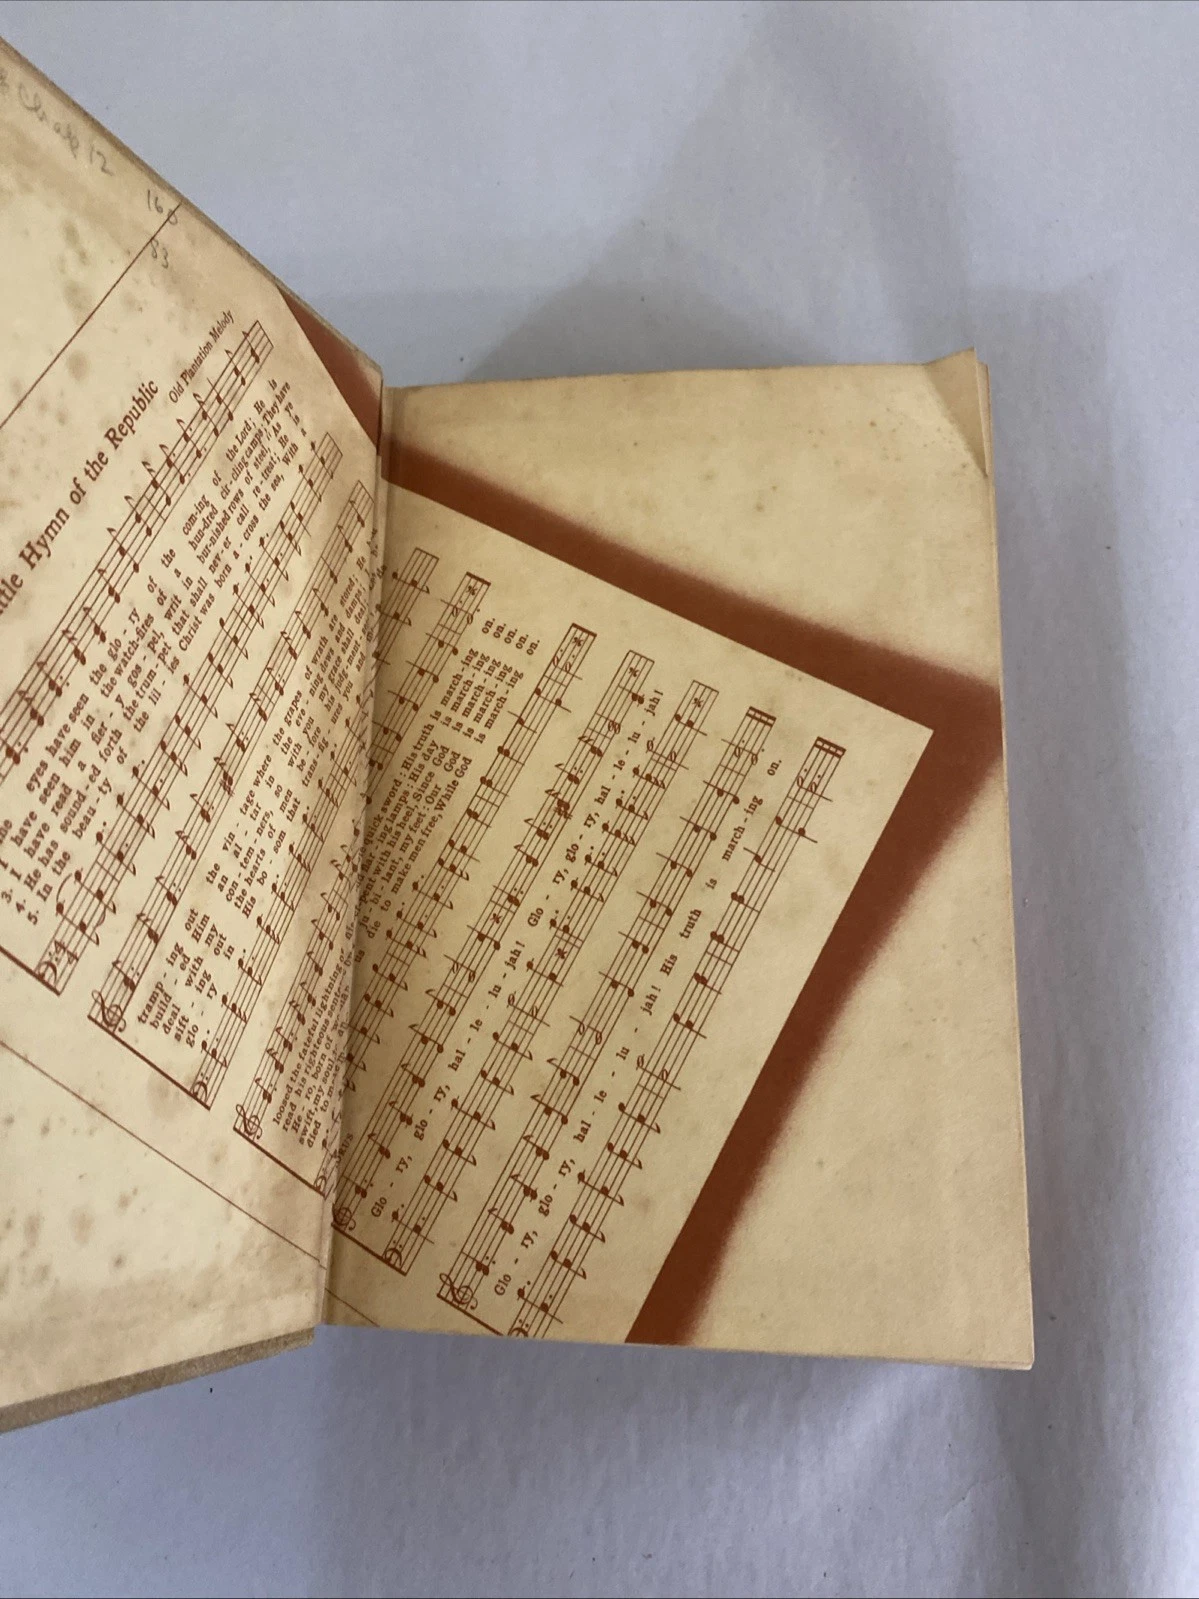 12
160
83
Hymn of the Republic
Old Plantation Melody
eyes have seen the glo - ry of the com-ing of the Lord; He is
I have seen him in the watch-fires of a hun-dred cir-cling camps; They have
3. I have read a fier - y gos - pel, writ in bur-nished rows of steel; As ye
4. He has sound-ed forth the trum-pet that shall nev-er call re-treat; He is
5. In the beau-ty of the lil - ies Christ was born a-cross the sea, With a
tramp - ing out the vin - tage where the grapes of wrath are stored; He
build - ed Him an al - tar in the eve - ning dews and damps;
deal with my con - tem - ners, so with you my grace shall deal;
sift - ing out the hearts of men be - fore his judg-ment
glo - ry in His bo - som that trans - fig - ures you and
loosed the fateful lightning of quick sword: His truth is march-ing on.
read his righteous flar - ing lamps: His day is march-ing on.
He - ro, born of with his heel, Since God is march-ing on.
swift, my soul, ju - bi - lant, my feet: Our God is march-ing on.
died to die to make men free, While God is march-ing on.
Glo - ry, glo - ry, hal - le - lu - jah! Glo - ry, glo - ry, hal - le - lu - jah!
Glo - ry, glo - ry, hal - le - lu - jah! His truth is march - ing on.